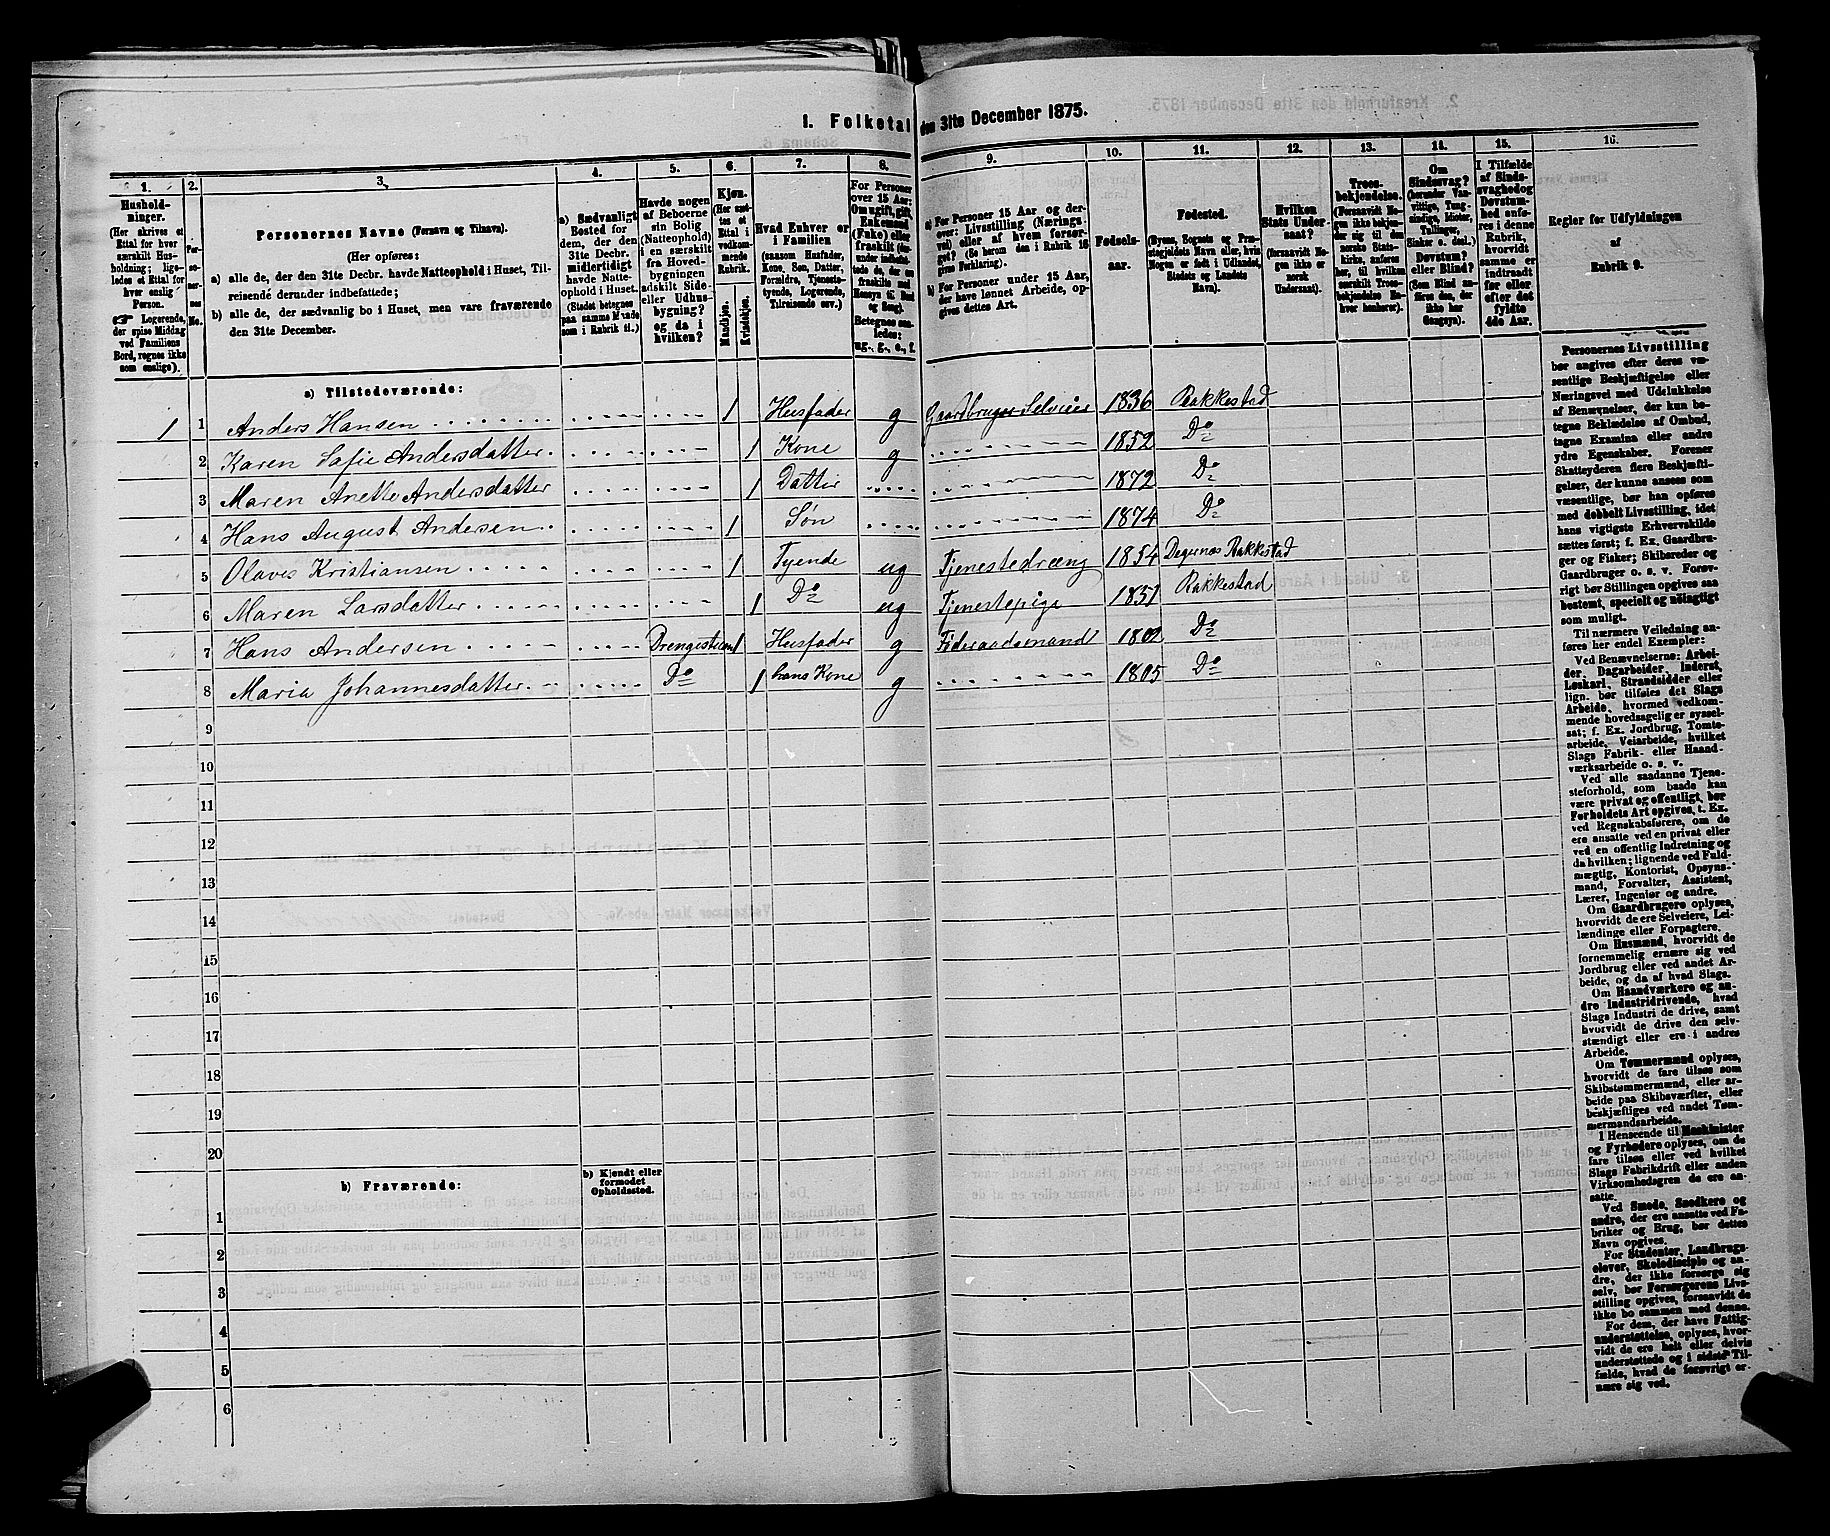 1. Folketal den 31te December 1875.
1. 2. 3. 4. 5. 6. 7. 8. 9. 10. 11. 12. 13. 14. 15. 16.
Hushold-
ninger.
(Her skrives et
Ettal for hver
særskilt Hus-
holdning; lige-
ledes et Ettal for
hver enslig
Person.
☞ Logerende,
der spise Middag
ved Familiens
Bord, regnes ikke
som enslige).
Per-
so-
ner-
nes
No.
Personernes Navne (Fornavn og Tilnavn).
(Her opføres:
a) alle de, der den 31te Decbr. havde Natteophold i Huset, Til-
reisende derunder indbefattede;
b) alle de, der sædvanlig bo i Huset, men vare fraværende
den 31te December.
a) Sædvanligt
Bosted for
dem, der den
31te Decbr.
midlertidigt
havde Natte-
ophold i Huset.
(Stedet betegnes
paa samme Maade
som i Rubrik 11.)
Havde nogen
af Beboerne
sin Bolig
(Natteophold)
i en særskilt
fra Hoved-
bygningen
adskilt Side-
eller Udhus-
bygning?
og da i
hvilken?
Kjøn.
(Her sæt-
tes et
Ettal i
vedkom-
mende
Rubrik.
Mandkjøn.
Kvindekjøn.
Hvad Enhver er
i Familien
(saasom Husfader,
Kone, Søn, Datter,
Forældre, Tjeneste-
tyende, Logerende,
Tilreisende osv.)
For Personer
over 15 Aar:
Om ugift, gift,
Enkemand
(Enke) eller
fraskilt
Betegnes saa-
ledes:
ug., g., e., f.
a) For Personer 15 Aar og der-
over: Livsstilling (Nærings-
vei) eller af hvem forsør-
get? (Se herom den i Rubrik 16
givne Forklaring).
b) For Personer under 15 Aar,
der have lønnet Arbeide, op-
gives dettes Art.
Fødsels-
aar.
Fødested.
(Byens, Sognets og Præ-
stegjældets Navn eller, hvis
Nogen er født i Udlandet,
Stedets og Landets
Navn).
Hvilken
Stats Under-
saat?
(forsaavidt No-
gen ikke er
norsk
Undersaat).
Troes-
bekjendelse.
(Forsaavidt No-
gen ikke bekjen-
der sig til den
norske Stats-
kirke, anføres
her, til hvilken
særskilt Troes-
bekjendelse En-
hver henhører).
Om
Sindssvag?
(herunder Van-
vittige, Tung-
sindige, Idioter,
Tullinger,
Sinker o. desl.)
Døvstum?
eller Blind?
(Som Blind an-
føres den, der
ikke har
Gangsyn).
I Tilfælde
af Sinds-
svaghed og
Døvstum-
hed anfø-
res i denne
Rubrik,
hvorvidt
samme er
indtraadt
før eller
efter det
fyldte
4de Aar.
Regler for Udfyldningen
af
Rubrik 9.
a) Tilstedeværende:
1 1 Anders Hansen 1 Husfader g Gaardbruger Selveier 1836 Rakkestad
2 Karen Safie Andersdatter 1 Kone g 1852 Do
3 Maren Anette Andersdatter 1 Datter 1872 Do
4 Hans August Andersen 1 Søn 1874 Do
5 Olaves Kristiansen 1 Tyende ug Tjenestedræng 1854 Degernes Rakkestad
6 Maren Larsdatter 1 Do ug Tjenestepige 1851 Rakkestad
7 Hans Andersen Drengestuen 1 Husfader g Føderaadsmand 1802 Do
8 Maria Johannesdatter Do 1 hans Kone g 1805 Do
9
10
11
12
13
14
15
16
17
18
19
20
b) Fraværende:
b) Kjendt eller
formodet
Opholdssted.
1
2
3
4
5
6
Personernes Livsstilling
bør angives efter deres væ-
sentlige Beskjæftigelse eller
Næringsvei med Udelukkelse
af Benævnelser, der kun be-
tegne Beklædelse af Ombud,
tagne Examina eller andre
ydre Egenskaber. Forener
Skatteyderen flere Beskjæfti-
gelser, der kunne ansees som
væsentlige, bør han opføres
med dobbelt Livsstilling, idet
hans vigtigste Erhvervskilde
sættes først; f. Ex. Gaardbru-
ger og Fisker; Skibsreder og
Gaardbruger o. s. v. Forøv-
rigt bør Stillingen opgives saa
bestemt, specielt og nøiagtigt
som muligt.
Til nærmere Veiledning an-
føres her endel Exempler:
Ved Benævnelserne: Arbei-
der, Dagarbeider, Inderst,
Løskarl, Strandsidder eller
lign. bør tilføies det Slags
Arbeide, hvormed vedkom-
mende hovedsagelig er syssel-
sat; f. Ex. Jordbrug, Tomte-
arbeide, Veiarbeide, hvilket
Slags Fabrik- eller Haand-
værksarbeide o. s. v.
Ved alle saadanne Tjene-
steforhold, som baade kan
være privat og offentligt, bør
Forholdets Art opgives, t. Ex.
ved Regnskabsførere, om de
ere ansatte ved en privat eller
ved en offentlig Indretning og
da hvilken; lignende ved Fuld-
mægtig, Kontorist, Opsyns-
mand, Forvalter, Assistent,
Lærer, Ingeniør og andre.
Om Gaardbrugere oplyses,
hvorvidt de ere Selveiere, Lei-
lændinge eller Forpagtere.
Om Husmænd, hvorvidt de
fornemmelig ernære sig ved
Jordbrug eller ved andet Ar-
beide, og da af hvad Slags.
Om Haandværkere og an-
dre Industridrivende, hvad
Slags Industri de drive, samt
hvorvidt de drive den selv-
stændigt eller ere i andres
Arbeide.
Om Tømmermænd oplyses,
hvorvidt de fare tilsøs som
Skibstømmermænd, eller ar-
beide paa Skibsværfter, eller
beskjæftiges ved andet Tøm-
mermandsarbeide.
I Henseende til Maskinister
og Fyrbødere oplyses, om de
fare tilsøs eller ved hvilket
Slags Fabrikdrift eller anden
Virksomhedsgren de ere an-
satte.
Ved Smede, Snedkere og
andre, der ere ansatte ved Fa-
briker og Brug, bør dettes
Navn opgives.
For Studenter, Landbrugs-
elever, Skoledisciple og an-
dre, der ikke forsørge sig
selv, bør Forsørgerens Livs-
stilling opgives, forsaavidt de
ikke bo sammen med denne.
For dem, der have Fattig-
understøttelse, oplyses, hvor-
vidt de ere helt eller delvis
understøttede og i sidste Til-
fælde, hvad de forøvrigt er-
nære sig ved.